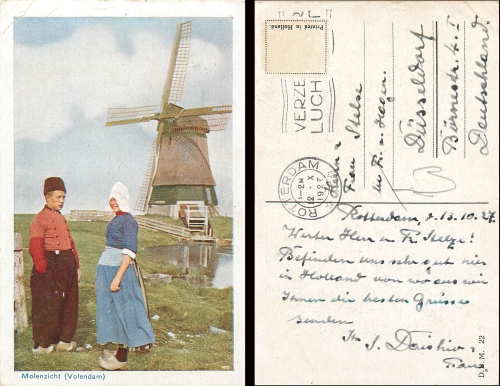 Molenzicht (Volendam)
Printed in Holland.
VERZE
LUCH
ROTTERDAM
1-2 N
12 X
1927
Herrn u
Frau Stelze
Hagen
Düsseldorf
Börnestr. 4. I
Deutschland
Rotterdam, d. 13.10.27.
Werter Herr u Fr. Stelze!
Befinden uns sehr gut hier
in Holland von wo aus wir
Ihnen die besten Grüsse
senden
Ihr S. Daishiro
Frau
D.B.M. 22